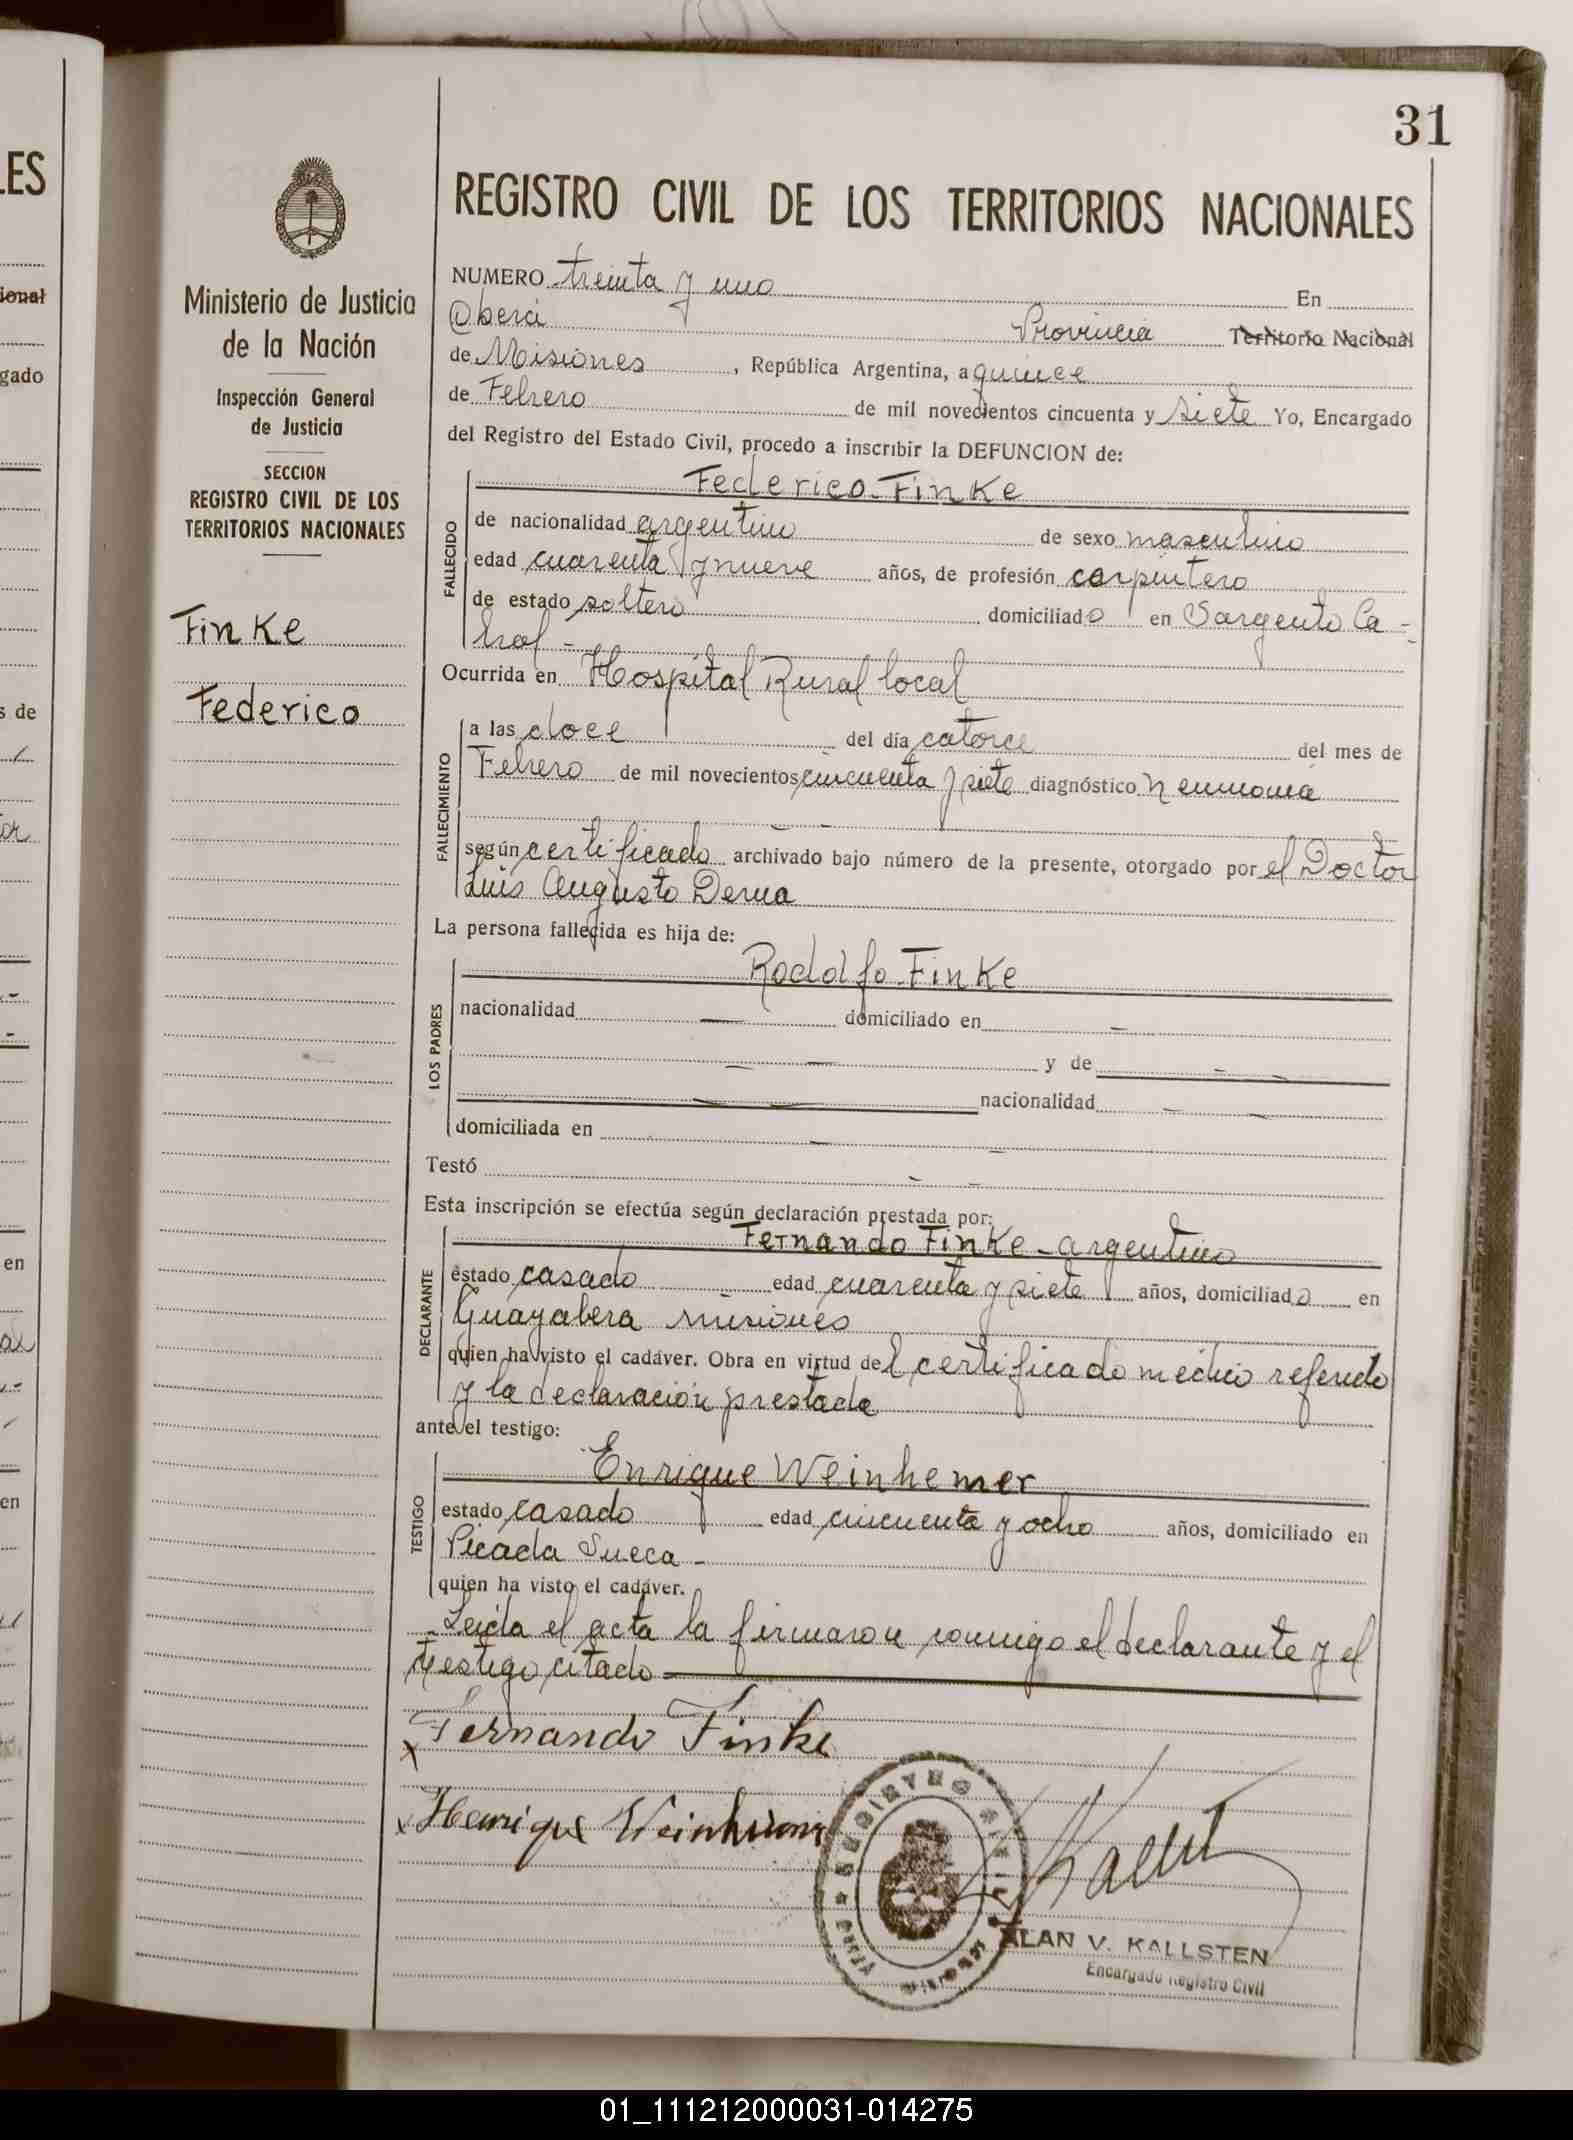 31
REGISTRO CIVIL DE LOS TERRITORIOS NACIONALES
Ministerio de Justicia
de la Nación
Inspección General
de Justicia
SECCION
REGISTRO CIVIL DE LOS
TERRITORIOS NACIONALES
Finke
Federico
NUMERO treinta y uno En
Oberá Provincia Territorio Nacional
de Misiones, República Argentina, a quince
de Febrero de mil novecientos cincuenta y siete Yo, Encargado
del Registro del Estado Civil, procedo a inscribir la DEFUNCION de:
Federico Finke
FALLECIDO
de nacionalidad argentino de sexo masculino
edad cuarenta y nueve años, de profesión carpintero
de estado soltero domiciliado en Sargento Ca-
bral -
Ocurrida en Hospital Rural local
FALLECIMIENTO
a las doce del día catorce del mes de
Febrero de mil novecientos cincuenta y siete diagnóstico Neumonia
según certificado archivado bajo número de la presente, otorgado por el Doctor
Luis Augusto Derna
La persona fallecida es hija de:
Rodolfo Finke
LOS PADRES
nacionalidad — domiciliado en —
— — y de — —
— — nacionalidad — —
domiciliada en — —
Testó - -
Esta inscripción se efectúa según declaración prestada por:
Fernando Finke - argentino
DECLARANTE
estado casado edad cuarenta y siete años, domiciliado en
Guayabera Misiones
quien ha visto el cadáver. Obra en virtud del certificado medico referido
y la declaración prestada
ante el testigo:
Enrique Weinhemer
TESTIGO
estado casado edad cincuenta y ocho años, domiciliado en
Picada Sueca -
quien ha visto el cadáver.
- Leida el acta la firmaron conmigo el declarante y el
testigo citado
x Fernando Finke
x Henrique
REGISTRO
ALAN V. KALLSTEN
Encargado Registro Civil
01_111212000031-014275